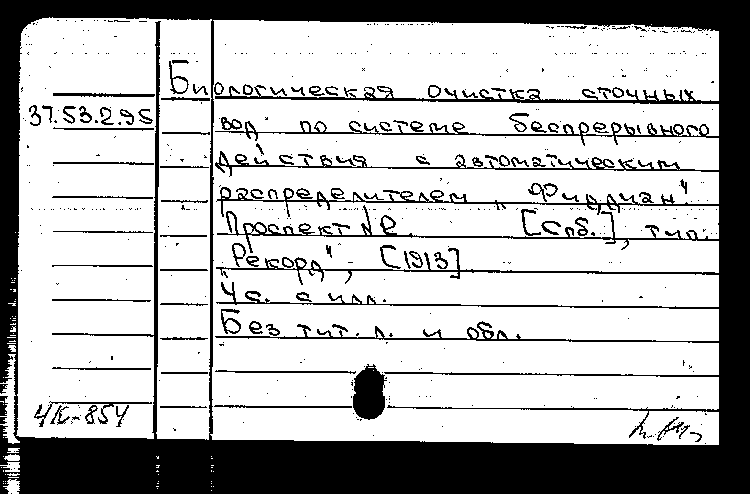 Биологическая очистка сточных
37.53.295 вод по системе беспрерывного
действия с автоматическим
распределителем „Фиддиан".
Проспект №2. [Спб.], тип.
„Рекорд", [1913]
4 с. с илл.
Без тит. л. и обл.
4К-854